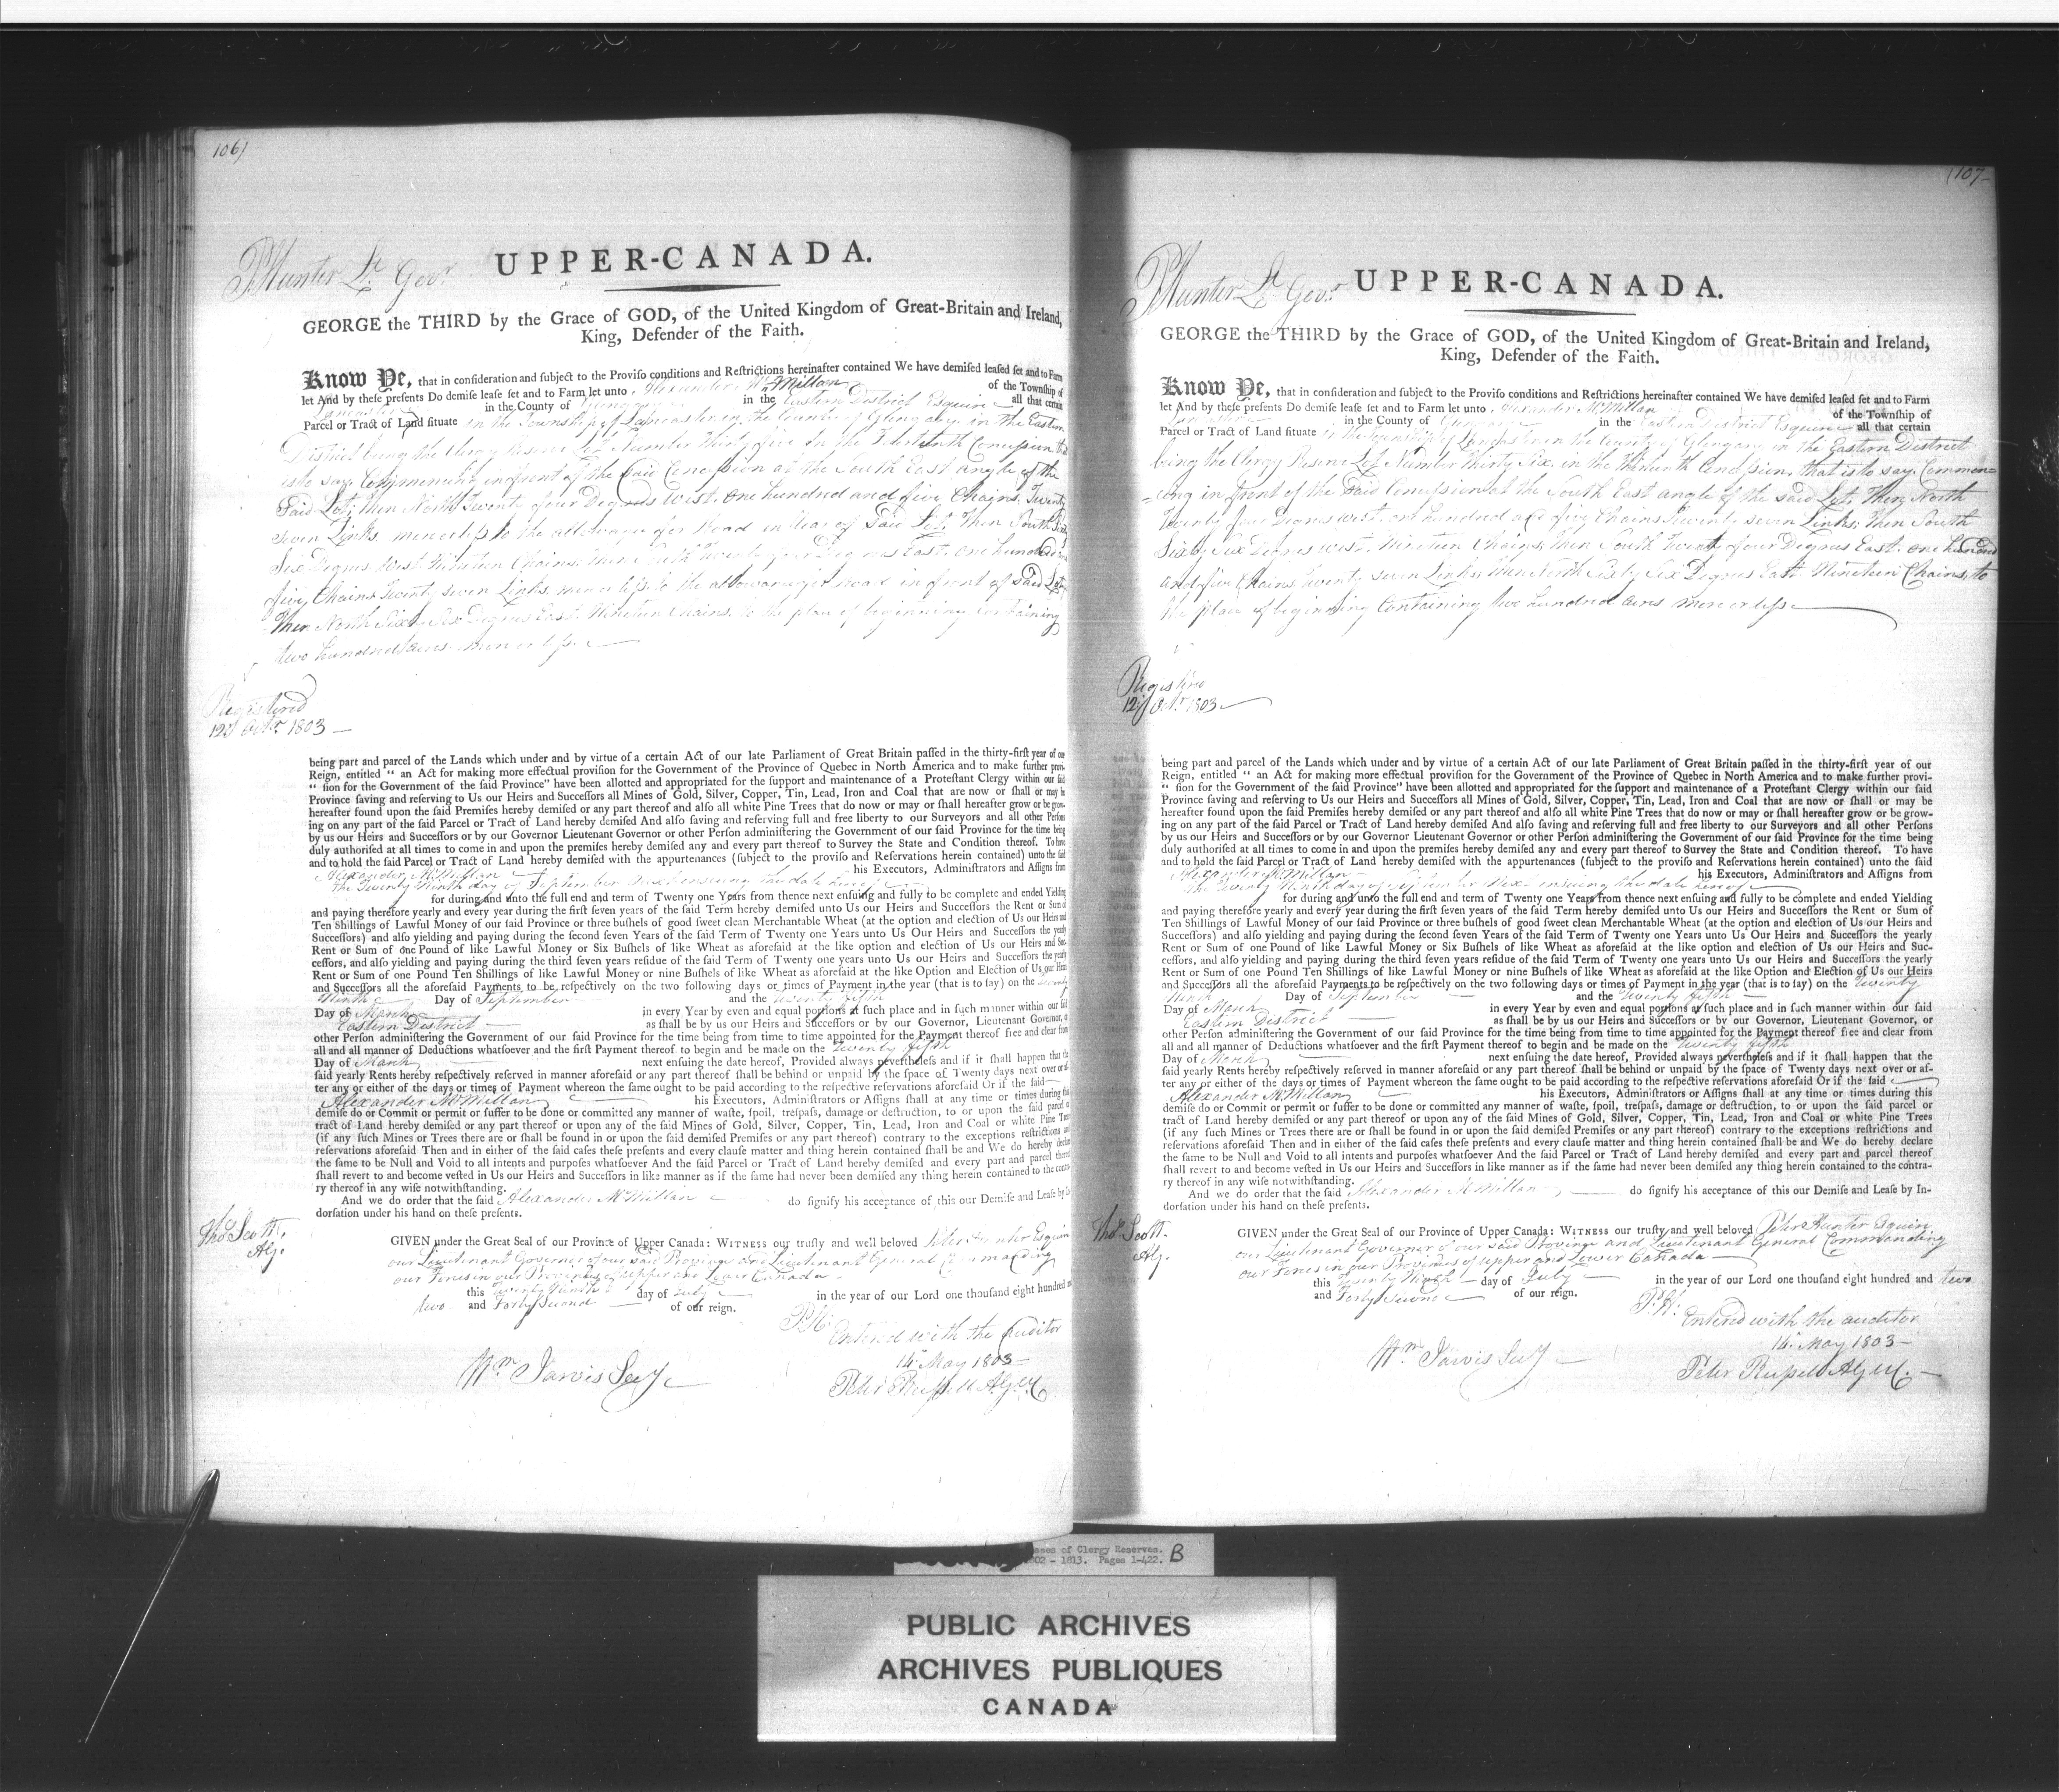 106)
P Hunter Lt. Govr.
UPPER-CANADA.
GEORGE the THIRD by the Grace of GOD, of the United Kingdom of Great-Britain and Ireland,
King, Defender of the Faith.
Know Ye, that in consideration and subject to the Proviso conditions and Restrictions hereinafter contained We have demised leased set and to Farm
let And by these presents Do demise lease set and to Farm let unto Alexander McMillan of the Township of
Lancaster in the County of Glengary in the Eastern District Esquire all that certain
Parcel or Tract of Land situate in the Township of Lancaster in the County of Glengary in the Eastern
District being the Clergy Reserve Lot Number thirty five in the Concession, that
is to say, Commencing in front of the said Concession at the South East angle of the
said Lot; then North Twenty four Degrees West, One hundred and five Chains, Twenty
seven Links more or less to the allowance for Road in rear of said Lot. Then South Sixty
Six Degrees West Nineteen Chains; then South Twenty four Degrees East, one hundred and
five Chains Twenty seven Links more or less to the allowance for Road in front of said Lot;
Then North Sixty Six Degrees East, Nineteen Chains, to the place of beginning containing
two hundred acres more or less.
Registered
12th Octr. 1803
being part and parcel of the Lands which under and by virtue of a certain Act of our late Parliament of Great Britain passed in the thirty-first year of our
Reign, entitled "an Act for making more effectual provision for the Government of the Province of Quebec in North America and to make further provi-
"sion for the Government of the said Province" have been allotted and appropriated for the support and maintenance of a Protestant Clergy within our said
Province saving and reserving to Us our Heirs and Successors all Mines of Gold, Silver, Copper, Tin, Lead, Iron and Coal that are now or shall or may be
hereafter found upon the said Premises hereby demised or any part thereof and also all white Pine Trees that do now or may or shall hereafter grow or be grow-
ing on any part of the said Parcel or Tract of Land hereby demised And also saving and reserving full and free liberty to our Surveyors and all other Persons
by us our Heirs and Successors or by our Governor Lieutenant Governor or other Person administering the Government of our said Province for the time being
duly authorised at all times to come in and upon the premises hereby demised any and every part thereof to Survey the State and Condition thereof. To have
and to hold the said Parcel or Tract of Land hereby demised with the appurtenances (subject to the proviso and Reservations herein contained) unto the said
Alexander McMillan his Executors, Administrators and Assigns from
the Twenty Ninth day of September next ensuing the date hereof
for during and unto the full end and term of Twenty one Years from thence next ensuing and fully to be complete and ended Yielding
and paying therefore yearly and every year during the first seven years of the said Term hereby demised unto Us our Heirs and Successors the Rent or Sum of
Ten Shillings of Lawful Money of our said Province or three bushels of good sweet clean Merchantable Wheat (at the option and election of Us our Heirs and
Successors) and also yielding and paying during the second seven Years of the said Term of Twenty one Years unto Us Our Heirs and Successors the yearly
Rent or Sum of one Pound of like Lawful Money or Six Bushels of like Wheat as aforesaid at the like option and election of Us our Heirs and Suc-
cessors, and also yielding and paying during the third seven years residue of the said Term of Twenty one years unto Us our Heirs and Successors the yearly
Rent or Sum of one Pound Ten Shillings of like Lawful Money or nine Bushels of like Wheat as aforesaid at the like Option and Election of Us our Heirs
and Successors all the aforesaid Payments to be respectively on the two following days or times of Payment in the year (that is to say) on the Twenty
Ninth Day of September and the Twenty fifth
Day of March in every Year by even and equal portions at such place and in such manner within our said
Eastern District as shall be by us our Heirs and Successors or by our Governor, Lieutenant Governor, or
other Person administering the Government of our said Province for the time being from time to time appointed for the Payment thereof free and clear from
all and all manner of Deductions whatsoever and the first Payment thereof to begin and be made on the Twenty fifth
Day of March next ensuing the date hereof, Provided always nevertheless and if it shall happen that the
said yearly Rents hereby respectively reserved in manner aforesaid or any part thereof shall be behind or unpaid by the space of Twenty days next over or af-
ter any or either of the days or times of Payment whereon the same ought to be paid according to the respective reservations aforesaid Or if the said
Alexander McMillan his Executors, Administrators or Assigns shall at any time or times during this
demise do or Commit or permit or suffer to be done or committed any manner of waste, spoil, trespass, damage or destruction, to or upon the said parcel or
tract of Land hereby demised or any part thereof or upon any of the said Mines of Gold, Silver, Copper, Tin, Lead, Iron and Coal or white Pine Trees
(if any such Mines or Trees there are or shall be found in or upon the said demised Premises or any part thereof) contrary to the exceptions restrictions and
reservations aforesaid Then and in either of the said cases these presents and every clause matter and thing herein contained shall be and We do hereby declare
the same to be Null and Void to all intents and purposes whatsoever And the said Parcel or Tract of Land hereby demised and every part and parcel thereof
shall revert to and become vested in Us our Heirs and Successors in like manner as if the same had never been demised any thing herein contained to the contra-
ry thereof in any wise notwithstanding.
And we do order that the said Alexander McMillan do signify his acceptance of this our Demise and Lease by In-
dorsation under his hand on these presents.
Thos. Scott.
A.G.
GIVEN under the Great Seal of our Province of Upper Canada: WITNESS our trusty and well beloved Peter Hunter Esquire
our Lieutenant Governor of our said Province and Lieutenant General Commanding
our Forces in our Provinces of Upper and Lower Canada
this Twenty Ninth day of July in the year of our Lord one thousand eight hundred and
two and Forty Second of our reign.
P.H.
Entered with the Auditor
14th May 1803
Peter Russell A.G.
Wm Jarvis Secy
(107
P Hunter Lt. Govr.
UPPER-CANADA.
GEORGE the THIRD by the Grace of GOD, of the United Kingdom of Great-Britain and Ireland,
King, Defender of the Faith.
Know Ye, that in consideration and subject to the Proviso conditions and Restrictions hereinafter contained We have demised leased set and to Farm
let And by these presents Do demise lease set and to Farm let unto Alexander McMillan of the Township of
Lancaster in the County of Glengary in the Eastern District Esquire all that certain
Parcel or Tract of Land situate in the Township of Lancaster in the County of Glengary in the Eastern District
being the Clergy Reserve Lot Number Thirty Six, in the thirteenth Concession, that is to say, Commen=
=cing in front of the said Concession at the South East angle of the said Lot; Then North
Twenty four Degrees West, one hundred and five Chains Twenty seven Links; then South
Sixty Six Degrees West, Nineteen Chains; then South Twenty four Degrees East, one hundred
and five Chains, Twenty seven Links; then North Sixty Six Degrees East Nineteen Chains, to
the place of beginning Containing two hundred acres more or less
Registered
12th Octr. 1803
being part and parcel of the Lands which under and by virtue of a certain Act of our late Parliament of Great Britain passed in the thirty-first year of our
Reign, entitled "an Act for making more effectual provision for the Government of the Province of Quebec in North America and to make further provi-
"sion for the Government of the said Province" have been allotted and appropriated for the support and maintenance of a Protestant Clergy within our said
Province saving and reserving to Us our Heirs and Successors all Mines of Gold, Silver, Copper, Tin, Lead, Iron and Coal that are now or shall or may be
hereafter found upon the said Premises hereby demised or any part thereof and also all white Pine Trees that do now or may or shall hereafter grow or be grow-
ing on any part of the said Parcel or Tract of Land hereby demised And also saving and reserving full and free liberty to our Surveyors and all other Persons
by us our Heirs and Successors or by our Governor Lieutenant Governor or other Person administering the Government of our said Province for the time being
duly authorised at all times to come in and upon the premises hereby demised any and every part thereof to Survey the State and Condition thereof. To have
and to hold the said Parcel or Tract of Land hereby demised with the appurtenances (subject to the proviso and Reservations herein contained) unto the said
Alexander McMillan his Executors, Administrators and Assigns from
the Twenty Ninth day of September Next ensuing the date hereof
for during and unto the full end and term of Twenty one Years from thence next ensuing and fully to be complete and ended Yielding
and paying therefore yearly and every year during the first seven years of the said Term hereby demised unto Us our Heirs and Successors the Rent or Sum of
Ten Shillings of Lawful Money of our said Province or three bushels of good sweet clean Merchantable Wheat (at the option and election of Us our Heirs and
Successors) and also yielding and paying during the second seven Years of the said Term of Twenty one Years unto Us Our Heirs and Successors the yearly
Rent or Sum of one Pound of like Lawful Money or Six Bushels of like Wheat as aforesaid at the like option and election of Us our Heirs and Suc-
cessors, and also yielding and paying during the third seven years residue of the said Term of Twenty one years unto Us our Heirs and Successors the yearly
Rent or Sum of one Pound Ten Shillings of like Lawful Money or nine Bushels of like Wheat as aforesaid at the like Option and Election of Us our Heirs
and Successors all the aforesaid Payments to be respectively on the two following days or times of Payment in the year (that is to say) on the Twenty
Ninth Day of September and the Twenty fifth
Day of March in every Year by even and equal portions at such place and in such manner within our said
Eastern District as shall be by us our Heirs and Successors or by our Governor, Lieutenant Governor, or
other Person administering the Government of our said Province for the time being from time to time appointed for the Payment thereof free and clear from
all and all manner of Deductions whatsoever and the first Payment thereof to begin and be made on the Twenty fifth
Day of March next ensuing the date hereof, Provided always nevertheless and if it shall happen that the
said yearly Rents hereby respectively reserved in manner aforesaid or any part thereof shall be behind or unpaid by the space of Twenty days next over or af-
ter any or either of the days or times of Payment whereon the same ought to be paid according to the respective reservations aforesaid Or if the said
Alexander McMillan his Executors, Administrators or Assigns shall at any time or times during this
demise do or Commit or permit or suffer to be done or committed any manner of waste, spoil, trespass, damage or destruction, to or upon the said parcel or
tract of Land hereby demised or any part thereof or upon any of the said Mines of Gold, Silver, Copper, Tin, Lead, Iron and Coal or white Pine Trees
(if any such Mines or Trees there are or shall be found in or upon the said demised Premises or any part thereof) contrary to the exceptions restrictions and
reservations aforesaid Then and in either of the said cases these presents and every clause matter and thing herein contained shall be and We do hereby declare
the same to be Null and Void to all intents and purposes whatsoever And the said Parcel or Tract of Land hereby demised and every part and parcel thereof
shall revert to and become vested in Us our Heirs and Successors in like manner as if the same had never been demised any thing herein contained to the contra-
ry thereof in any wise notwithstanding.
And we do order that the said Alexander McMillan do signify his acceptance of this our Demise and Lease by In-
dorsation under his hand on these presents.
Thos. Scott.
A.G.
GIVEN under the Great Seal of our Province of Upper Canada: WITNESS our trusty and well beloved Peter Hunter Esquire
our Lieutenant Governor of our said Province and Lieutenant General Commanding
our Forces in our Provinces of Upper and Lower Canada
this Twenty Ninth day of July in the year of our Lord one thousand eight hundred and two
and Forty Second of our reign.
P.H.
Entered with the auditor
14th May 1803
Peter Russell A.G.
Wm Jarvis Secy
ases of Clergy Reserves.
1802 - 1813. Pages 1-422. B
PUBLIC ARCHIVES
ARCHIVES PUBLIQUES
CANADA